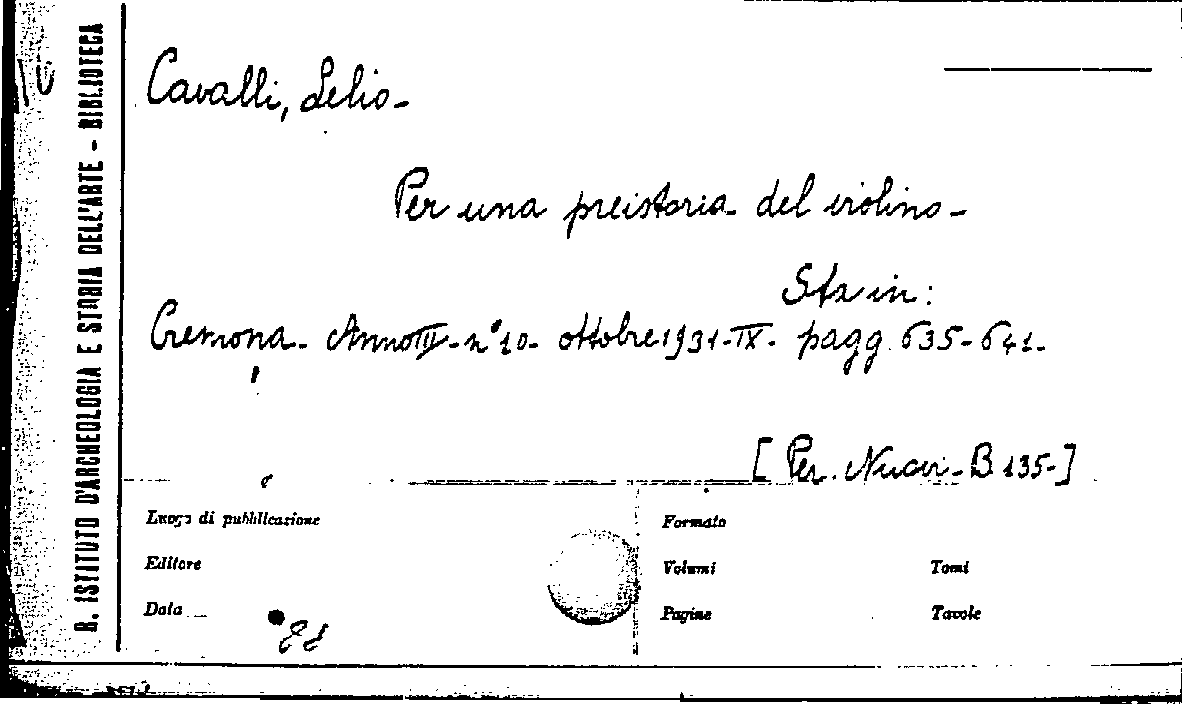 R. ISTITUTO D'ARCHEOLOGIA E STORIA DELL'ARTE - BIBLIOTECA
Cavalli, Lelio -
Per una preistoria del violino -
Sta in:
Cremona - Anno III - n° 10 - ottobre 1931 - IX - pagg. 635 - 641 -
[Per. Nuovi - B 135 - ]
Luogo di pubblicazione
Formato
Editore
Volumi Tomi
Data
Pagine Tavole